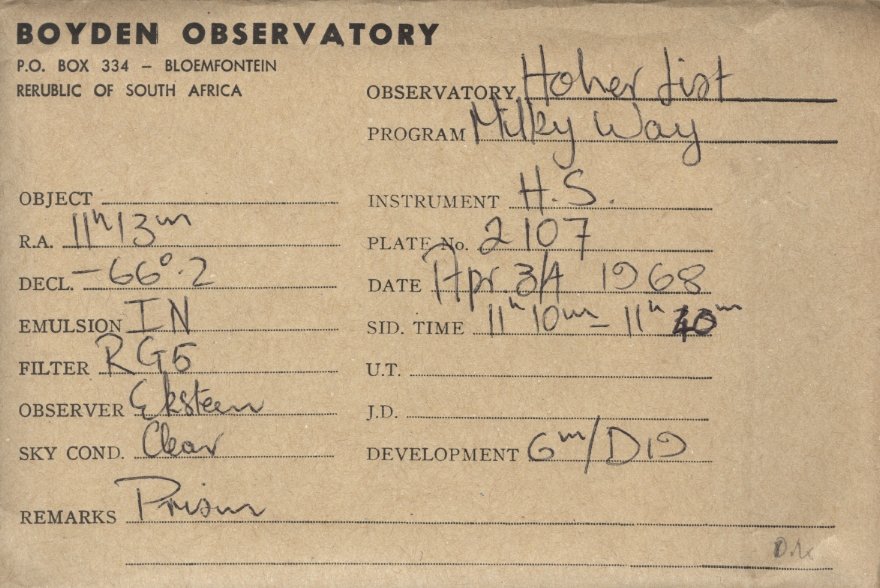 BOYDEN OBSERVATORY
P.O. BOX 334 – BLOEMFONTEIN
RERUBLIC OF SOUTH AFRICA
OBSERVATORY Hoher List
PROGRAM Milky Way
OBJECT
R.A. 11h 13m
DECL. -66°.2
EMULSION IN
FILTER RG5
OBSERVER Eksteen
SKY COND. Clear
INSTRUMENT H.S.
PLATE No. 2107
DATE Apr. 3/4 1968
SID. TIME 11h 10m – 11h 40m
U.T.
J.D.
DEVELOPMENT 6m/D19
REMARKS Prism